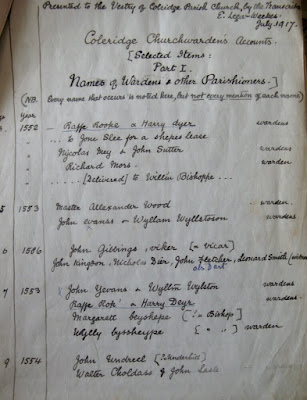 Presented to the Vestry of Coleridge Parish Church, by the Transcriber
E. Lega-Weekes.
July 1917.
Coleridge Churchwarden's Accounts.
[Selected Items:
Part I.
Names of Wardens & other Parishioners.]
(NB. Every name that occurs is noted here, but not every mention of each name)
Year
1552 Raffe Rooke & Harry dyer wardens
... to Jone Slee for a shepes lease
... Nycolas Dey & John Sutter wardens
Richard Mors. warden
... [Delivered] to Willm Bishoppe ...
5 1553 Master Alexander Wood warden
John evans & Wyllam Wyllstoson wardens
6 1556 John Gibbings, viker [= vicar]
John Kingdon, Nicholas Dier, John Fletcher, Leonard Smith
7 1553 John Yevans & Wyllm Wylston wardens
Raffe Rok' & Harry Deyr wardens
Margarett beyshepe [?= Bishop]
Wylly byssheype [ " " ] warden
9 1554 John Undrell [?Underhill]
Walter Choldass & John